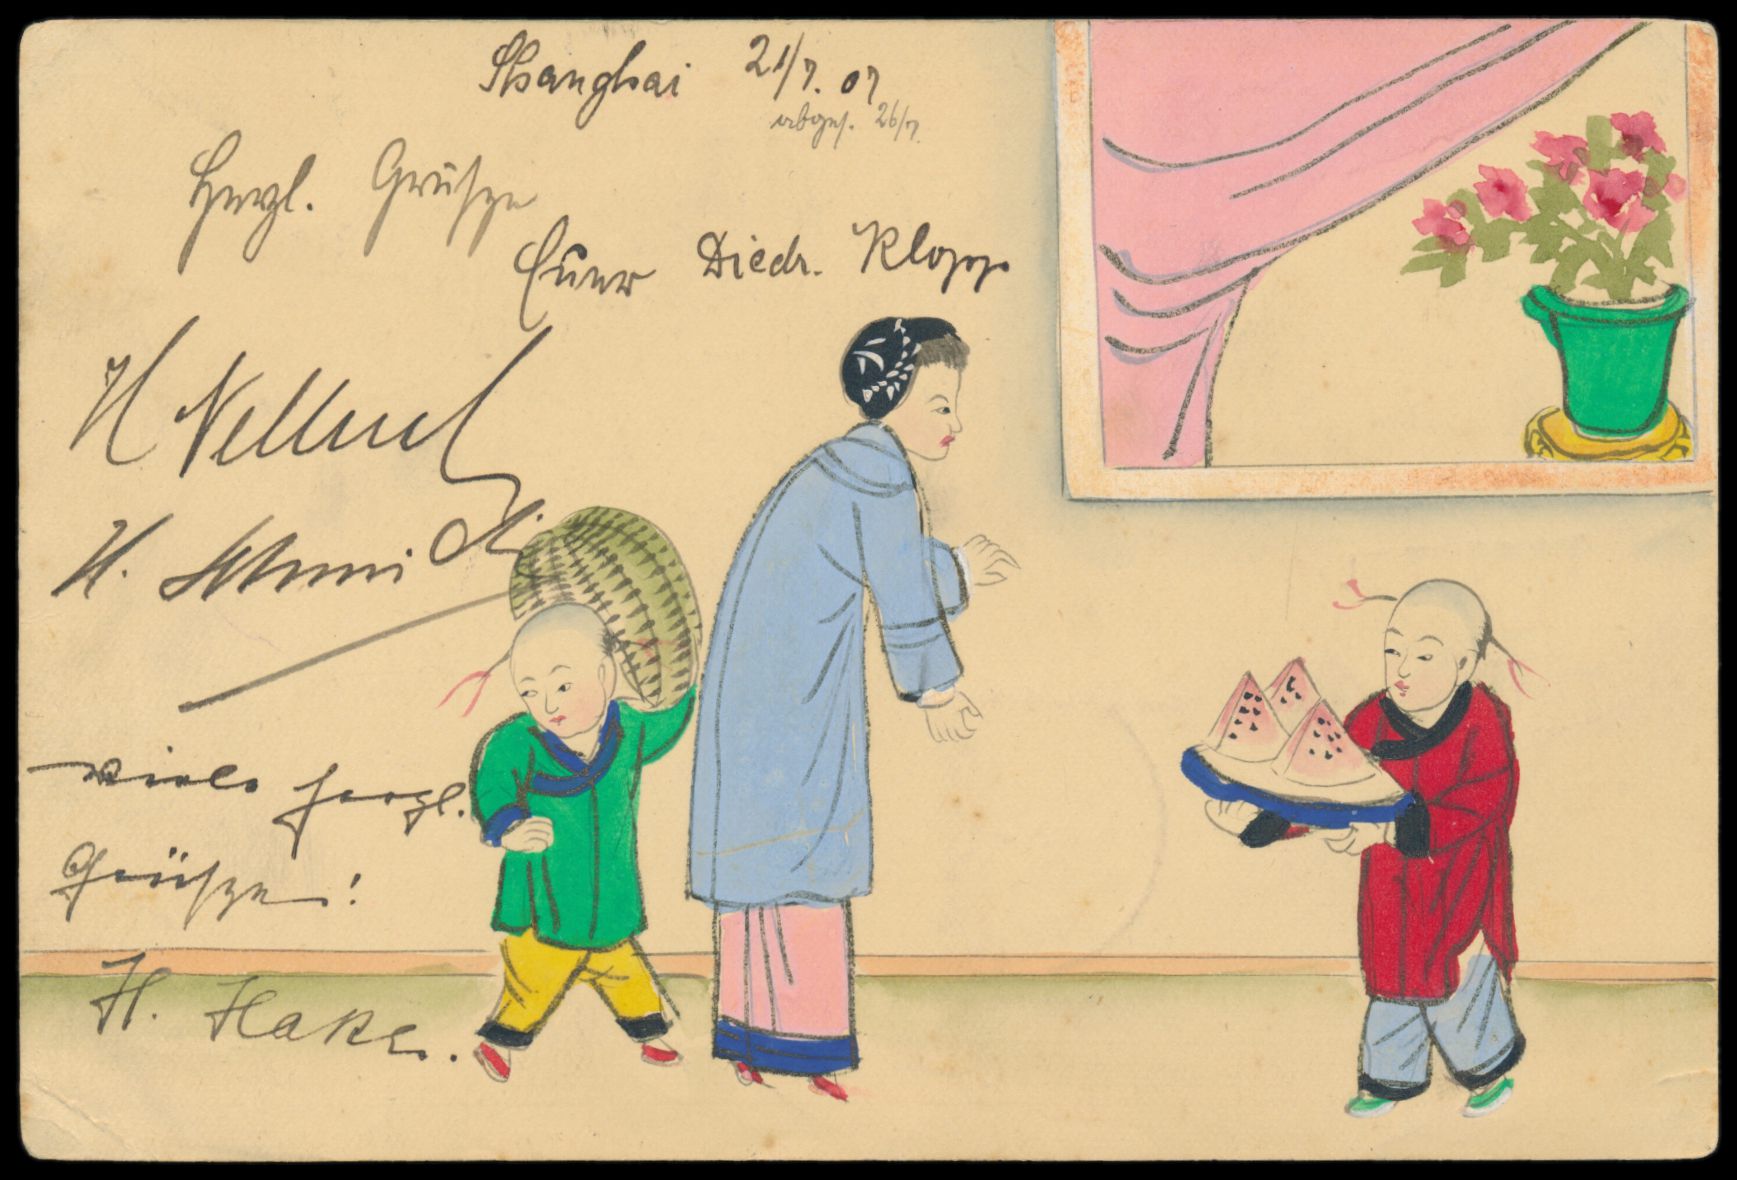 Shanghai 21/7. 07
abges. 26/7.
Herzl. Grüße
Euer Diedr. Klopp
H
H. Schmidt
Viele herzl.
Grüße!
H. Hake.